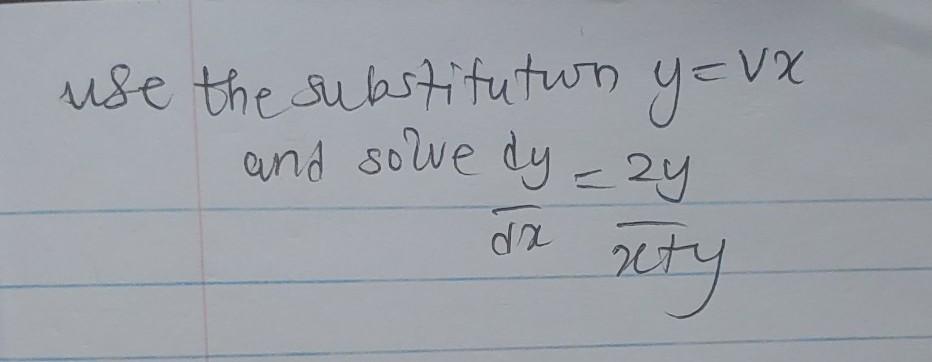 use the substitutwn y=vx
and solve dy = 2y
dx x+y